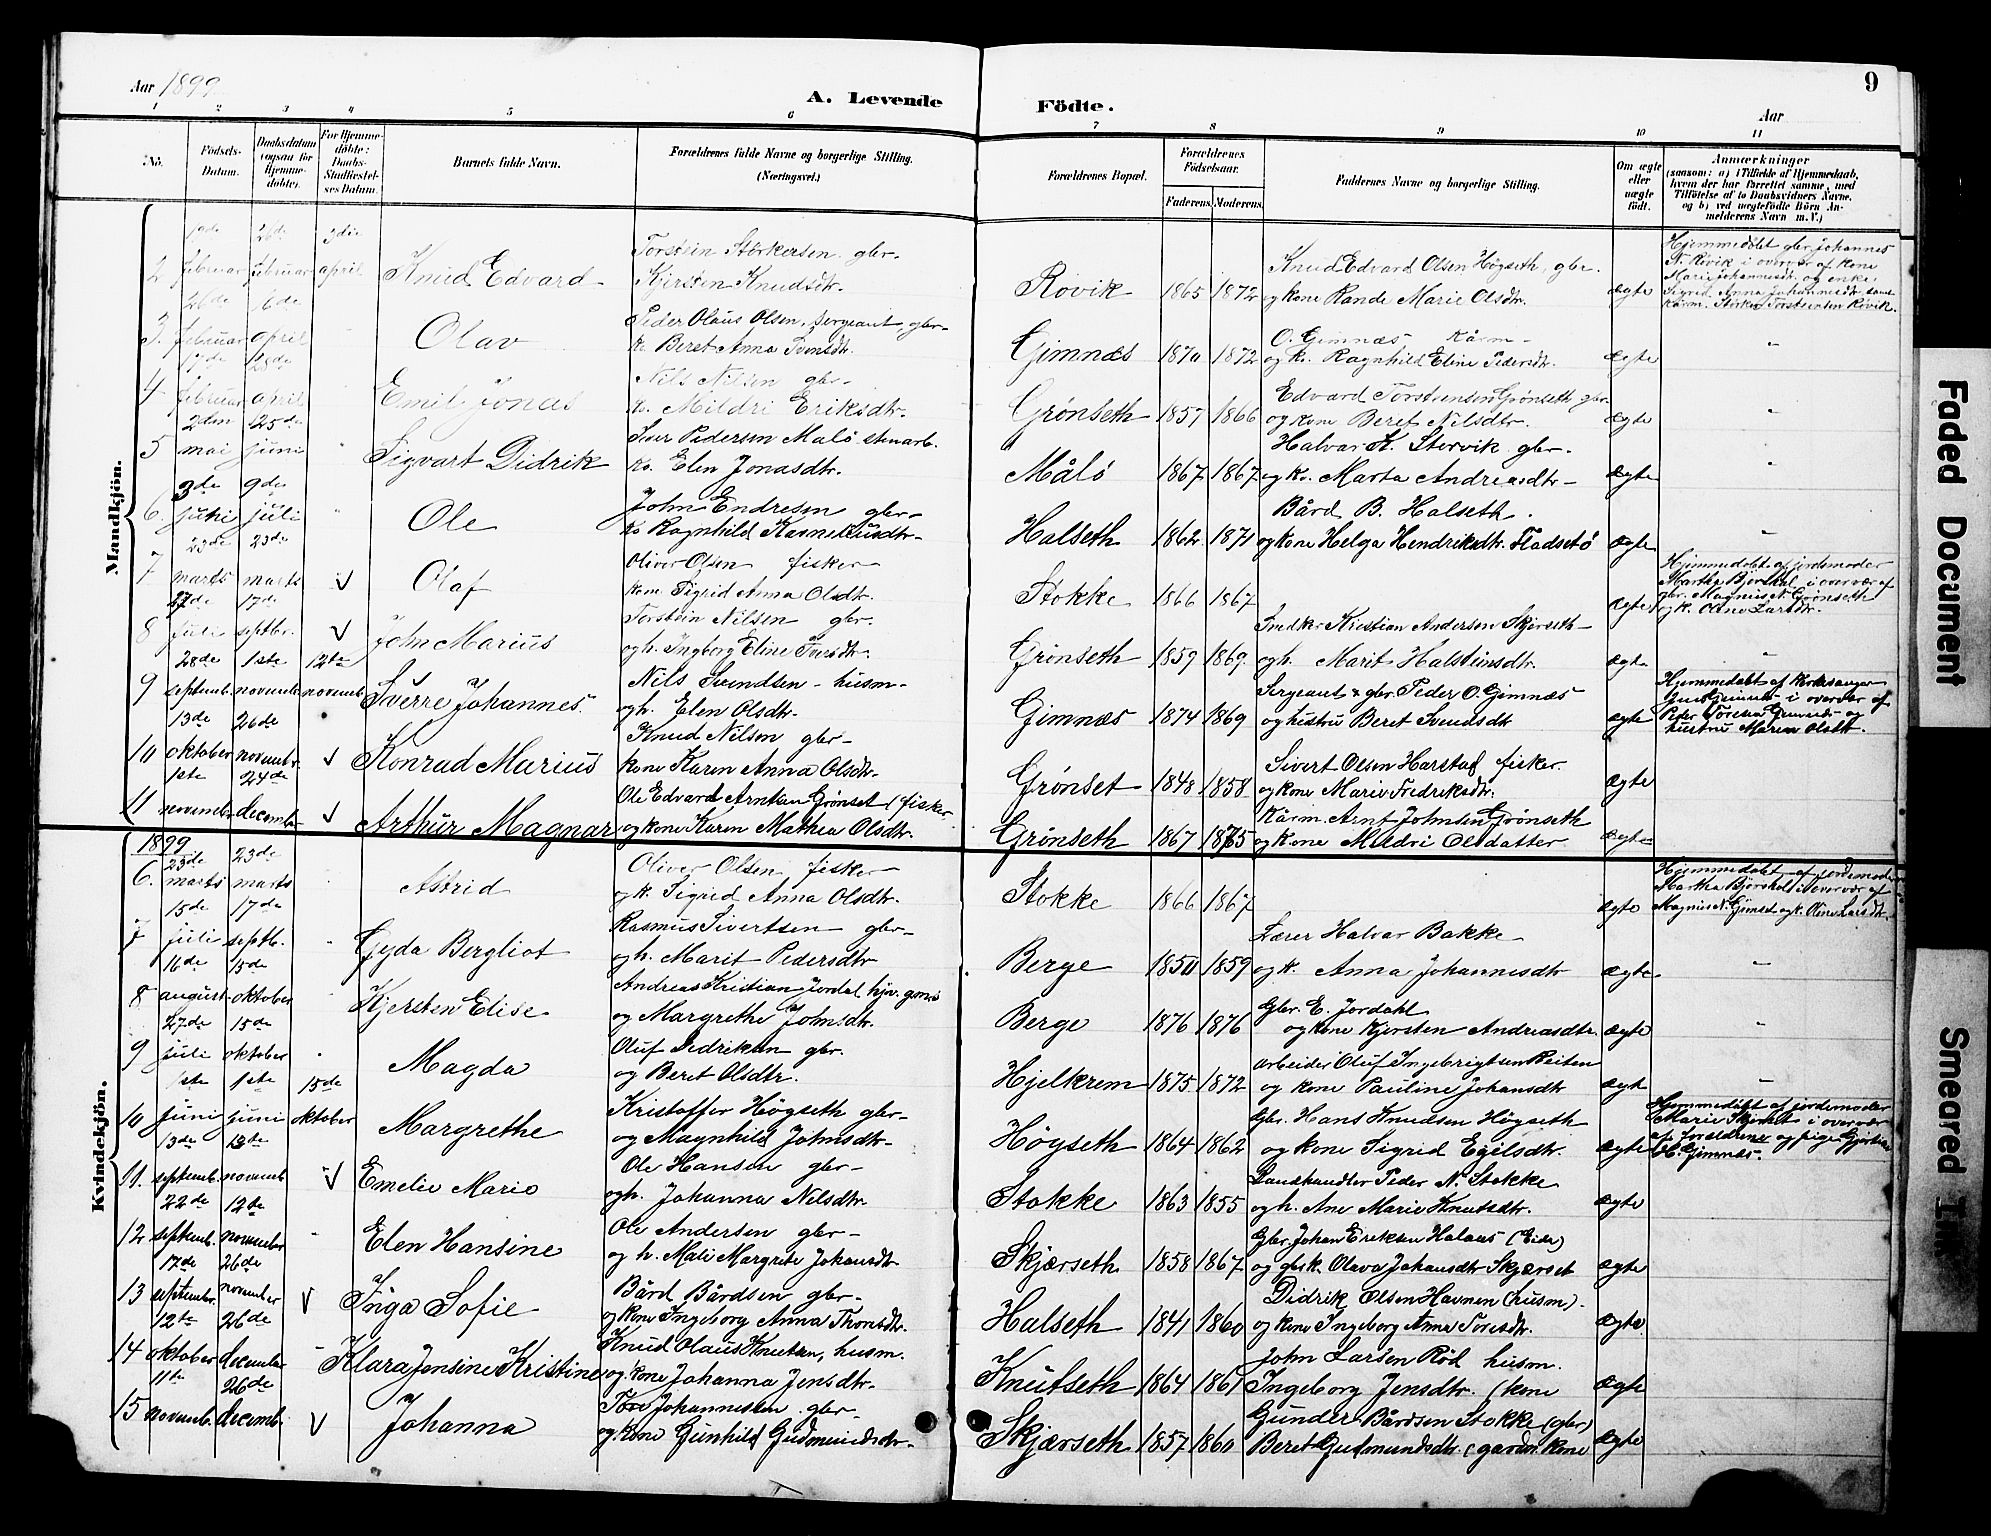 Aar 1899
A. Levende Födte.
Aar
9
1 2 3 4 5 6 7 8 9 10 11
No.
Födsels-Datum.
Daabsdatum (ogsaa för Hjemme-döbte).
For Hjemme-döbte: Daabs-Stadfæstel-ses Datum.
Barnets fulde Navn.
Forældrenes fulde Navne og borgerlige Stilling. (Næringsvei.)
Forældrenes Bopæl.
Forældrenes Födselsaar.
Faderens. Moderens.
Faddernes Navne og borgerlige Stilling.
Om ægte eller uægte födt.
Anmærkninger
(saasom: a) i Tilfælde af Hjemmedaab, hvem der har forrettet samme, med Tilföielse af to Daabsvidners Navne, og b) ved uægtefödte Börn An-melderens Navn m. V.)
Mandkjön.
2 februar februar april Knud Edvard
Torstein Störkersen gbr.
Kjersten Knudsdtr.
Rövik 1865 1872
Knud Edvard Olsen Högseth, gbr.
og kone Rande Marie Olsdtr. ægte
Hjemmedöbt gbr. Johannes
T. Rövik i overvær af kone
26de 6de
3. februar april Olav
Peder Olaus Olsen, sergeant, gbr.
k. Beret Anna Svensdtr.
Gimnæs 1870 1872
O. Gimnæs Kårm
og k. Ragnhild Eline Pedersdtr. ægte
17de 28de
4 februar april Emil Jonas
Nils Nilsen gbr.
k. Mildri Eriksdtr.
Grönseth 1857 1866
Edvard Torstensen Grönseth gbr.
og kone Beret Nilsdtr. ægte
2den 25de
5 mai juni Sigvart Didrik
Iver Pedersen Malö stenarb.
k. Elen Jonasdtr.
Målö 1867 1867
Halvar K. Störvik gbr.
og k. Marta Andreasdtr ægte
3de 9de
6. juni juli Ole
John Endresen gbr
k. Ragnhild Rasmusdtr
Halseth 1862 1871
Bård B. Halseth.
og kone Helga Hendriksdtr. Fladsetö ægte
23de 23de
7 marts marts Olaf
Oliver Olsen fisker
kone Sigrid Anna Olsdtr.
Stokke 1866 1867 ægte
Hjemmedöbt af jordemoder
Martha Bjørshol i overvær af
gbr. Magnus N. Grönseth
og k. Oline Larsdtr.
27de 17de
8 juli septbr. John Marius
Torstein Nilsen gbr.
og h. Ingborg Eline Iversdtr.
Grönseth 1859 1869
Smedker Kristian Andersen Skjörseth
og h. Marit Halsteinsdtr. ægte
28de 1ste 12te
9 septemb. novemb. novemb. Sverre Johannes
Nils Svendsen husm
og h. Elen Olsdtr.
Gimnæs 1874 1869
Sergeant & gbr. Peder O. Gimnæs
og hustru Beret Svendsdtr ægte
Hjemmedöbt af kirkesanger
Jens Gimnæs i overvær af
hustru Maren Olsdtr.
13de 26de
10 oktober novembr. Konrad Marius
Knud Nilsen gbr
kone Karen Anna Olsdtr.
Grönset 1848 1858
Sivert Olsen Harstad fisker
og kone Marie Fredriksdtr. ægte
1ste 24de
11 novemb. decemb. Arthur Magnar
Ole Edvard Arntsen Grönset (fisker
og kone Karen Mathea Olsdtr.
Grönseth 1867 1875
Kårm. Arnt Johnsen Grönseth
og kone Mildri Olsdatter ægte
Kvindekjön.
1899
23de 23de
6. marts marts Astrid
Oliver Olsen fisker
og k. Sigrid Anna Olsdtr.
Stokke 1866 1867 ægte
Hjemmedöbt af jordemoder
Martha Bjørshol i overvær af
Magnus N. Grönset og k. Oline Larsdtr.
15de 17de
7 juli septb. Gyda Bergliot
Rasmus Sivertsen gbr
og h. Marit Pedersdtr
Berge 1850 1859
Lærer Halvar Bakke
og k. Anna Johannesdtr ægte
16de 15de
8 august oktober Kjersten Elise
Andreas Kristian Jordal
og Margrethe Johnsdtr.
Berge 1876 1876
Gbr. E. Jordahl
og kone Kjersten Andreasdtr. ægte
27de 15de
9 juli oktober Magda
Oluf Didriksen gbr.
og Beret Olsdtr.
Hjelkrem 1875 1872
Arbeider Oluf Ingebrigtsen Reiten
og kone Pauline Johansdtr ægte
1ste 1ste 15de
10 juni juni oktober Margrethe
Kristoffer Högseth gbr
og Magnhild Johnsdtr
Högseth 1864 1862
Gbr. Hans Knudsen Högseth
og kone Sigrid Egilsdtr. ægte
Hjemmedöbt af jordemoder
Marie Skjörset i overvær
af forældrene og pige
H. Gimnæs.
13de 12de
11. septemb. novemb Emelie Marie
Ole Hansen gbr
og h. Johanna Nilsdtr.
Stokke 1863 1855
Landhandler Peder N. Stokke
og h. Ane Marie Knutsdtr. ægte
22de 12te
12 septemb. november Elen Hansine
Ole Andersen gbr
og h. Mali Margrete Johansdtr
Skjærseth 1858 1867
Gbr. Johan Eriksen Halaas (Eide)
og gbsk. Olava Johansdtr Skjærset ægte
17de 26de
13 septembr. november Inga Sofie
Bård Bårdsen gbr
og kone Ingeborg Anna Thoresdtr.
Halseth 1841 1860
Didrik Olsen Havnen (husm)
og kone Ingeborg Anna Toresdtr. ægte
12te 26de
14 oktober december Klara Jensine Kristine
Knud Olaus Knutsen, husm.
og kone Johanna Jensdtr
Knutseth 1864 1861
John Larsen Röd husm.
Ingeborg Jensdtr. (kone ægte
11te 26de
15 novemb. decemb. Johanna
Tore Johannesen gbr
og kone Gunhild Gudmundsdtr
Skjærseth 1857 1860
Gunder Bårdsen Stokke (gbr)
Beret Gudmundsdtr. (gardm. kone ægte
Faded Document
Smeared Ink